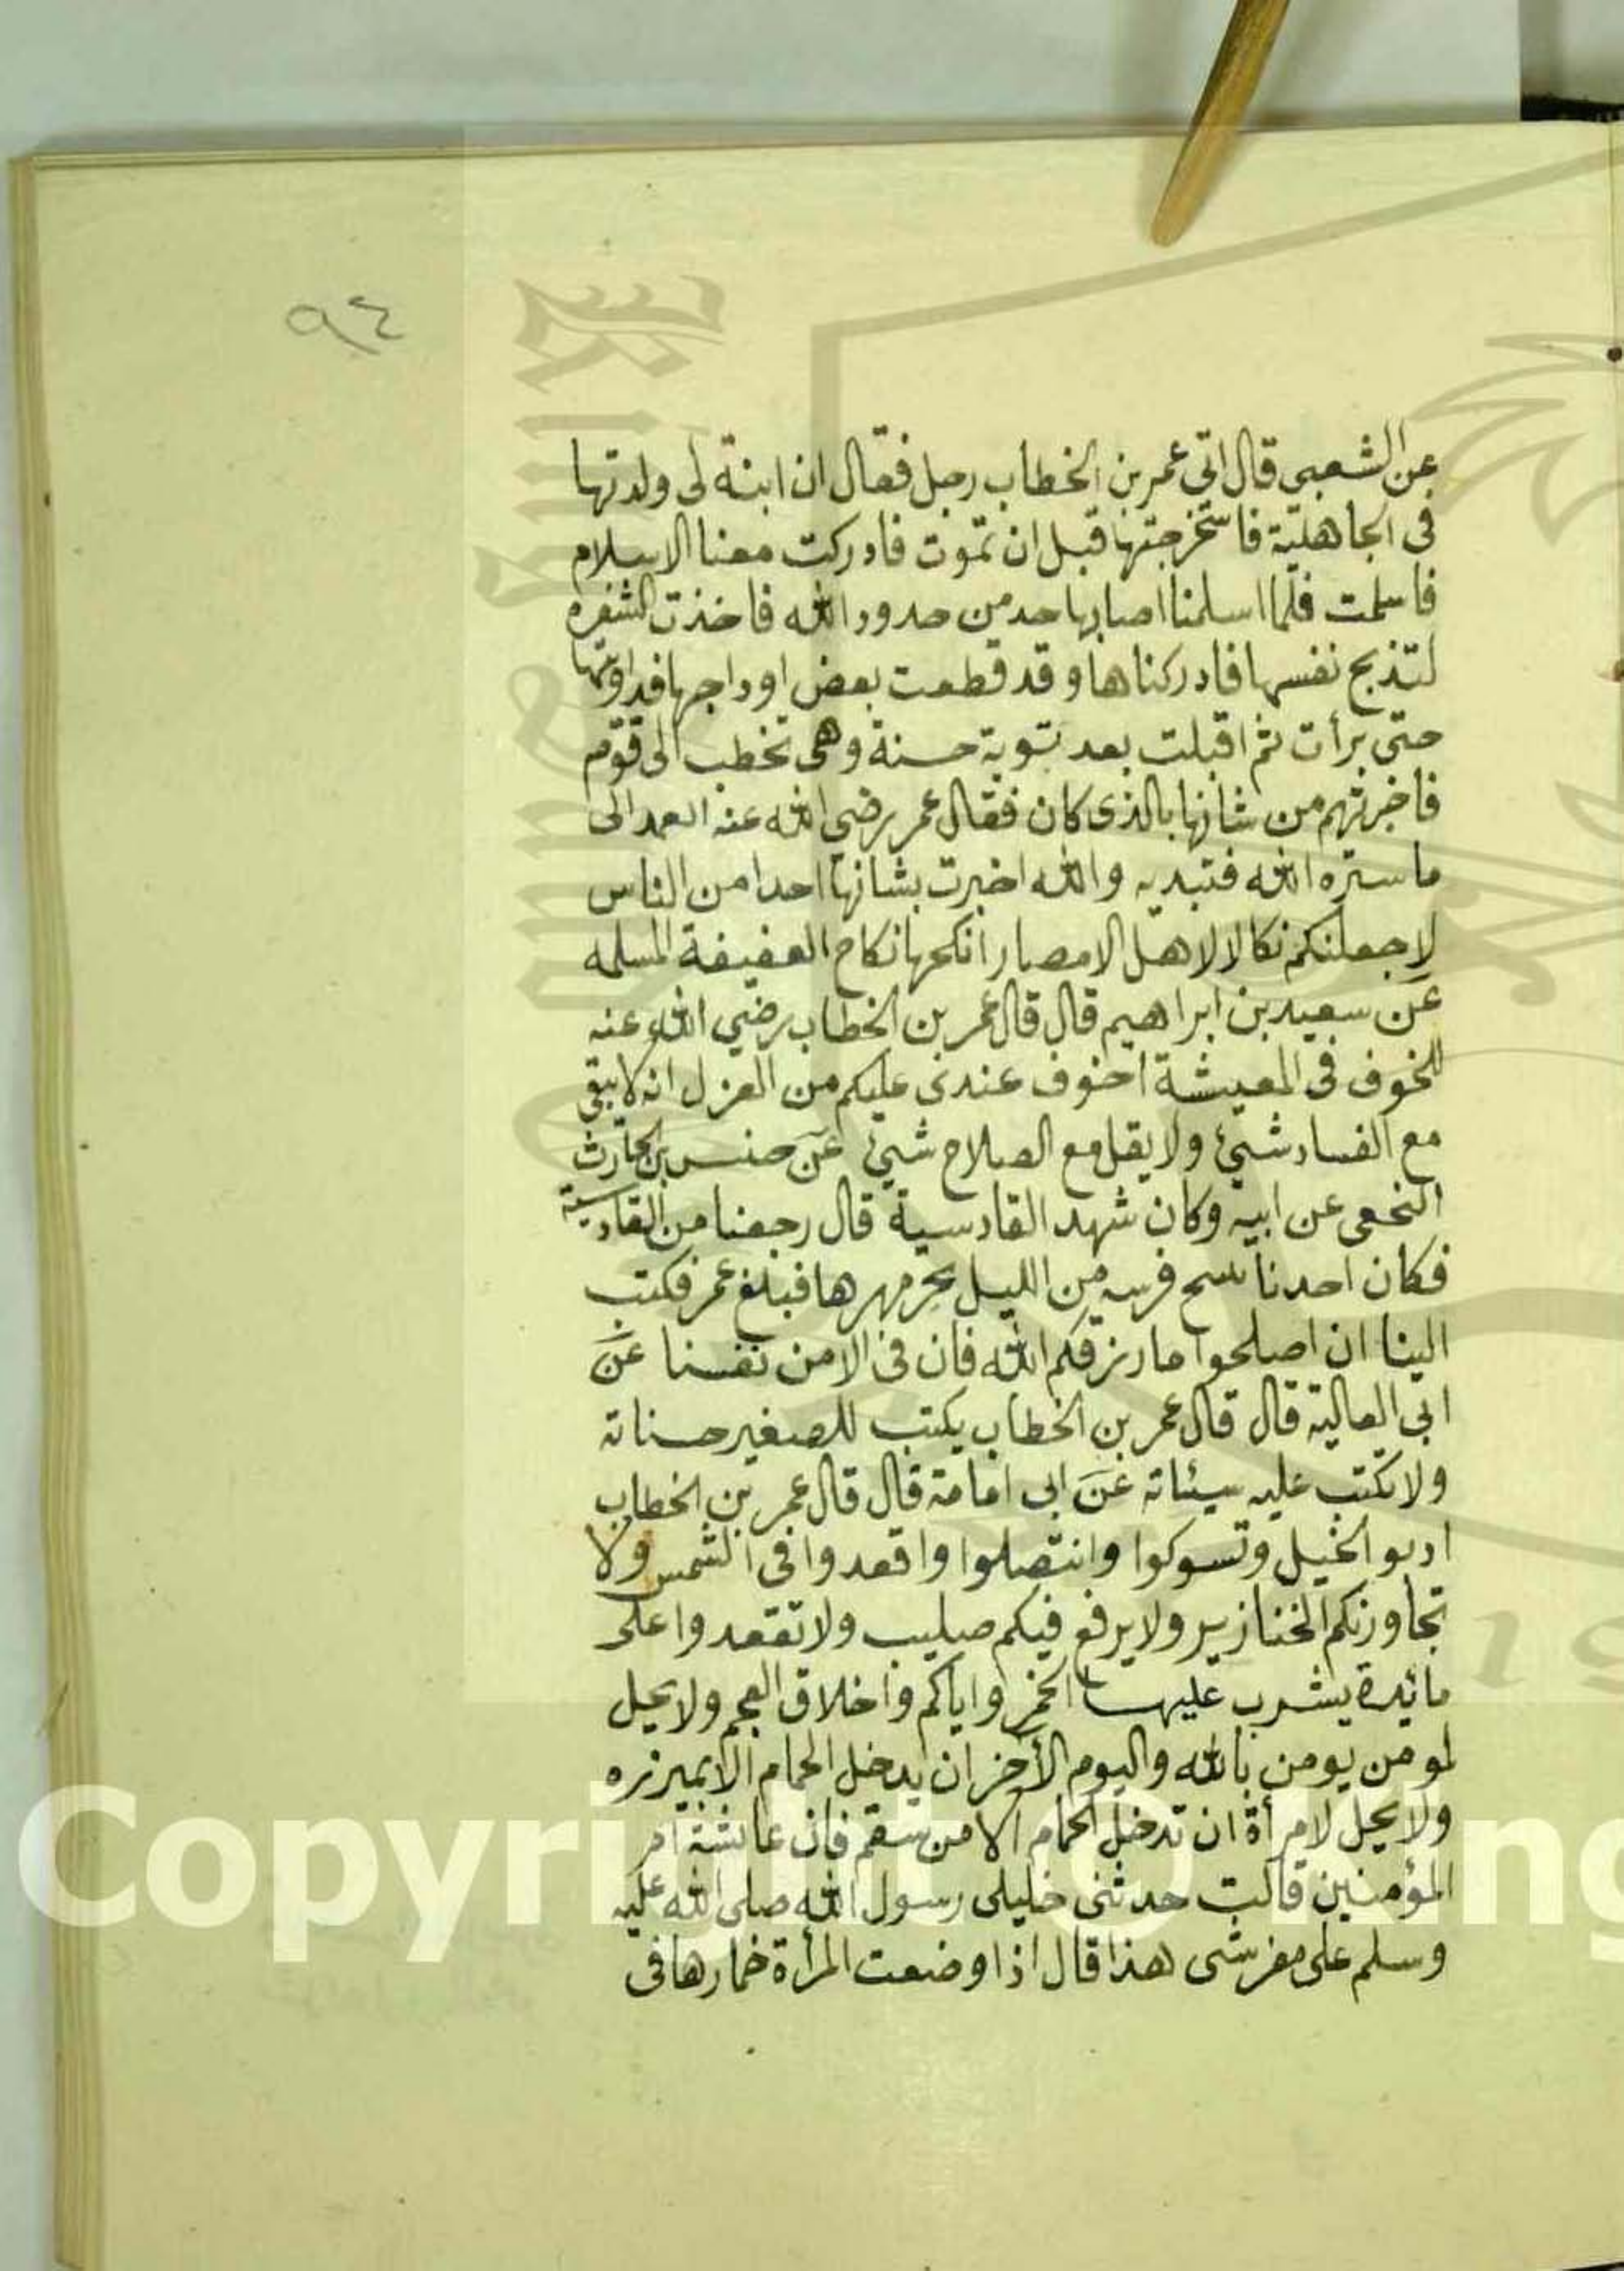 ٩٤
عن الشعبي قال اتى عمر بن الخطاب رجل فقال ان ابنة لى ولدتها
فى الجاهلية فاستخرجتها قبل ان تموت فادركت معنا الاسلام
فاسلمت فلما اسلمنا اصابها حد من حدود الله فاخذت الشفره
لتذبح نفسها فادركناها وقد قطعت بعض اوداجها فداويتها
حتى برأت ثم اقبلت بعد بتوبة حسنة وهى تخطب الى قوم
فاخبرتهم من شانها بالذى كان فقال عمر رضي الله عنه العمد الى
ما ستره الله فتبديه والله اخبرت بشانها احدا من الناس
لاجعلنكم نكالا لاهل الامصار انكحها نكاح العفيفة المسلمه
عن سعيد بن ابراهيم قال قال عمر بن الخطاب رضي الله عنه
للخوف فى المعيشة اخوف عندى عليكم من العزل انه لا يبقى
مع الفساد شئ ولا يقل مع الصلاح شئ عن حنس بن الحارث
النخعى عن ابيه وكان شهد القادسية قال رجعنا من القادسية
فكان احدنا سح فرسه من الليل بحر مهرها فبلغ عمر فكتب
الينا ان اصلحوا ما رزقكم الله فان فى الامن نفسنا عن
ابى العالية قال قال عمر بن الخطاب يكتب للصغير حسناته
ولا تكتب عليه سيئاته عن ابى امامة قال قال عمر بن الخطاب
ادبو الخيل وتسوكوا وانتصلوا واقعدوا فى الشمس ولا
تجاورنكم الخنازير ولا يرفع فيكم صليب ولا تقعدوا على
مائيدة يشرب عليها الخمر واياكم واخلاق العجم ولا يحل
لمومن يومن بالله واليوم الآخر ان يدخل الحمام الا بميزره
ولا يحل لامرأة ان تدخل الحمام الا من سقم فان عائشة ام
المؤمنين قالت حدثنى خليلى رسول الله صلى الله عليه
وسلم على مفرشى هذا قال اذا وضعت المرأة خمارها فى
Copyright © King